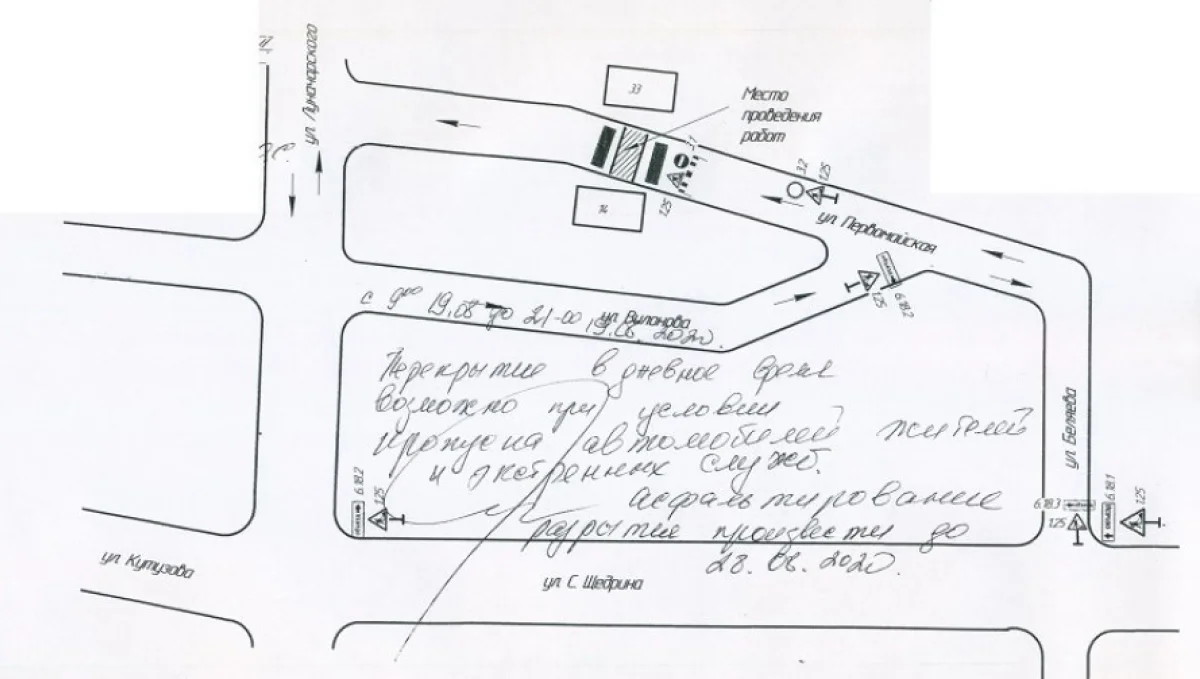 ул. Луначарского
33
Место
проведения
работ
3.1
3.2
1.25
14
1.25
ул. Первомайская
1.25
6.18.2
с 9⁰⁰ 19.08 до 21-00 19.08.2020.
ул. Вуланова
Перекрытие в дневное время
возможно при условии
пропуска автомобилей жителей
и экстренных служб.
асфальтирование
разрытия произвести до
28.08.2020.
ул. Беляева
6.18.2
1.25
6.18.3
1.25
6.18.1
1.25
ул. Кутузова
ул. С. Щедрина